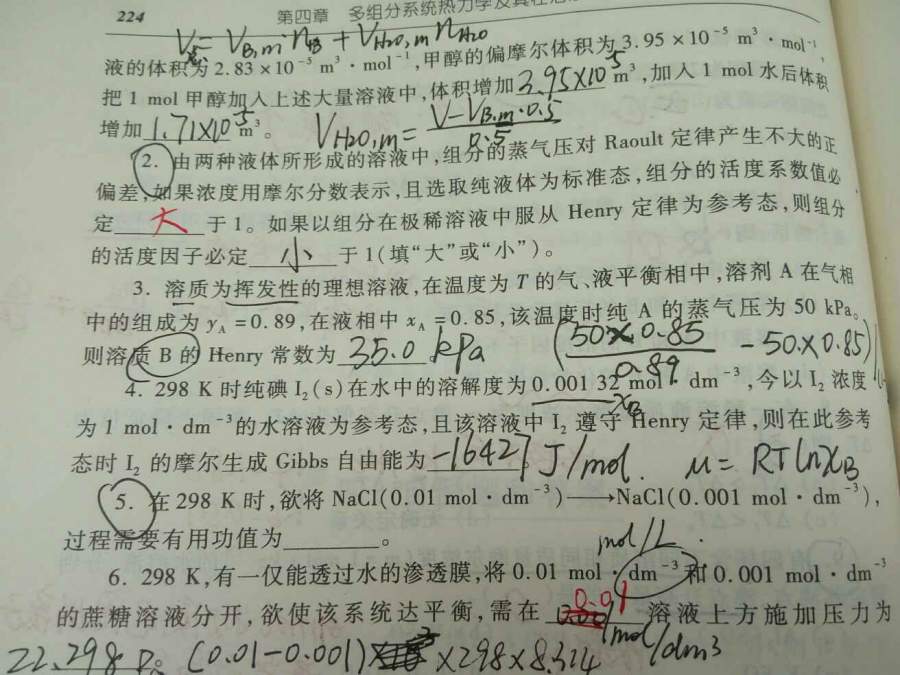 224
第四章 多组分系统热力学及其在
V = V_B,m·n_B + V_H2O,m n_H2O
液的体积为 2.83×10⁻⁵ m³·mol⁻¹,甲醇的偏摩尔体积为 3.95×10⁻⁵ m³·mol⁻¹
把 1 mol 甲醇加入上述大量溶液中,体积增加 3.95×10⁻⁵ m³,加入 1 mol 水后体积
增加 1.71×10⁻⁵ m³。 V_H2O,m = (V-V_B,m·0.5)/0.5
2. 由两种液体所形成的溶液中,组分的蒸气压对 Raoult 定律产生不大的正
偏差,如果浓度用摩尔分数表示,且选取纯液体为标准态,组分的活度系数值必
定 大 于 1。如果以组分在极稀溶液中服从 Henry 定律为参考态,则组分
的活度因子必定 小 于 1(填“大”或“小”)。
3. 溶质为挥发性的理想溶液,在温度为 T 的气、液平衡相中,溶剂 A 在气相
中的组成为 y_A = 0.89,在液相中 x_A = 0.85,该温度时纯 A 的蒸气压为 50 kPa。
则溶质 B 的 Henry 常数为 35.0 kPa (50×0.85/0.89 - 50×0.85)
4. 298 K 时纯碘 I₂(s)在水中的溶解度为 0.001 32 mol·dm⁻³,今以 I₂ 浓度
x_B
为 1 mol·dm⁻³的水溶液为参考态,且该溶液中 I₂ 遵守 Henry 定律,则在此参考
态时 I₂ 的摩尔生成 Gibbs 自由能为 -16427。 J/mol. μ = RT ln x_B
5. 在 298 K 时,欲将 NaCl(0.01 mol·dm⁻³)⟶NaCl(0.001 mol·dm⁻³),
过程需要有用功值为 。
mol/L.
6. 298 K,有一仅能透过水的渗透膜,将 0.01 mol·dm⁻³ 和 0.001 mol·dm⁻³
的蔗糖溶液分开,欲使该系统达平衡,需在 0.01 mol/dm³ 溶液上方施加压力为
22.298 P。 (0.01-0.001) ×298×8.314